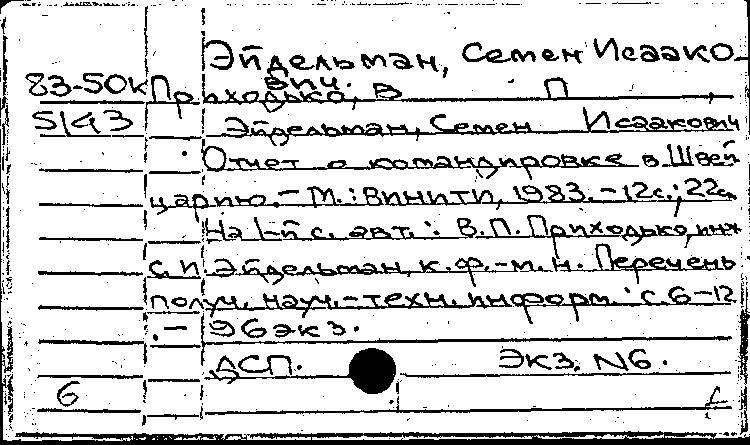 Эйдельман, Семен Исаако-
вич.
83-50к Приходько, В П
5143 Эйдельман, Семен Исаакович
Отчет о командировке в Швей
царию. - М.: ВИНИТИ, 1983. - 12с.; 22см
На 1-й с. авт.: В.П. Приходько, инж
С.И Эйдельман, к.ф.-м.н. Перечень
получ. науч.-техн. информ.: с.6-12
.- 96экз.
ДСП. ЭКЗ. N6.
6